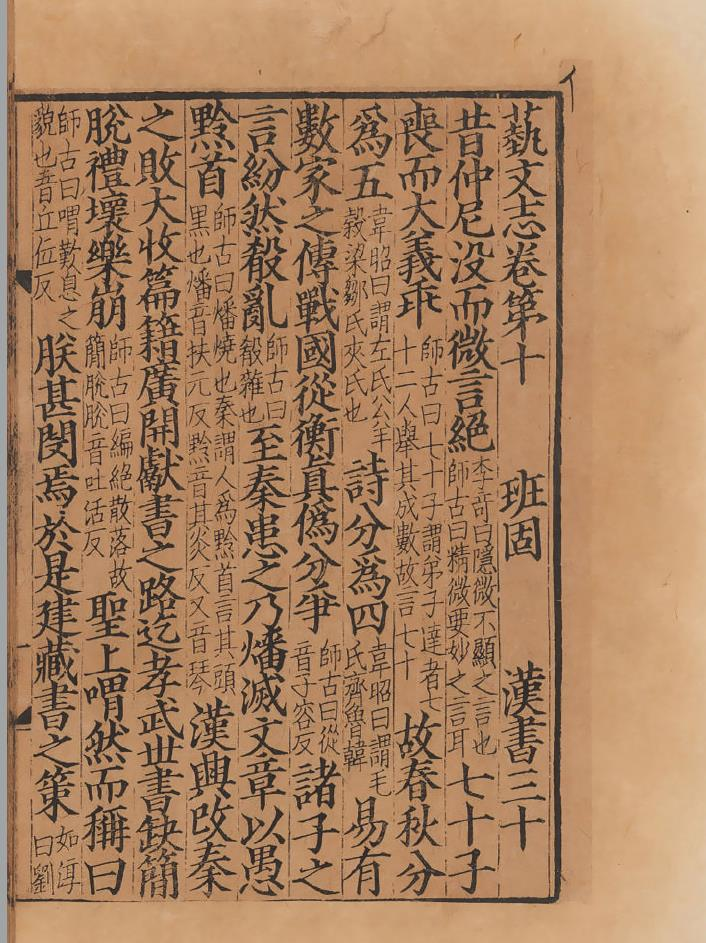 藝文志卷第十　班固　漢書三十
昔仲尼没而微言絶李奇曰隱微不顯之言也師古曰精微要妙之言耳七十子
喪而大義乖師古曰七十子謂弟子達者七十二人舉其成數故言七十故春秋分
爲五韋昭曰謂左氏公羊穀梁鄒氏夾氏也詩分爲四韋昭曰謂毛氏齊魯韓易有
數家之傳戰國從衡真僞分爭師古曰從音子容反諸子之
言紛然殽亂師古曰殽雜也至秦患之乃燔滅文章以愚
黔首師古曰燔燒也秦謂人爲黔首言其頭黑也燔音扶元反黔音其炎反又音琴漢興改秦
之敗大收篇籍廣開獻書之路迄孝武世書缺簡
脫禮壞樂崩師古曰編絶散落故簡脫脫音吐活反聖上喟然而稱曰
師古曰喟歎息之貌也音丘位反朕甚閔焉於是建藏書之策如淳曰劉